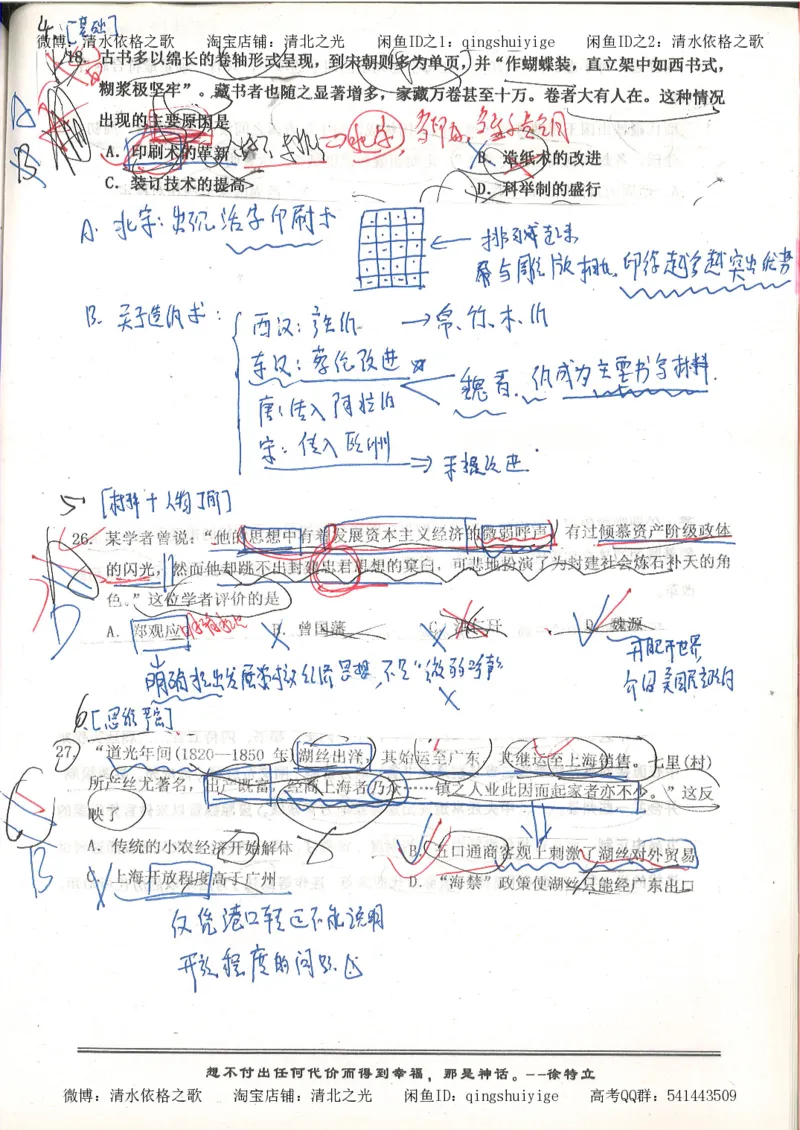 4. [基础]
微博：清水依格之歌 淘宝店铺：清北之光 闲鱼ID之1：qingshuiyige 闲鱼ID之2：清水依格之歌
18. 古书多以绵长的卷轴形式呈现，到宋朝则多为单页，并“作蝴蝶装，直立架中如西书式，
糊浆极坚牢”。藏书者也随之显著增多，家藏万卷甚至十万。卷者大有人在。这种情况
出现的主要原因是
A. 印刷术的革新 B. 造纸术的改进
C. 装订技术的提高 D. 科举制的盛行
A. 北宋：出现活字印刷术
排列成
与雕版相比，印得越多越突出优势
B. 关于造纸术：
西汉： → 帛、竹、木、
东汉：蔡伦改进
魏晋，纸成为主要书写材料.
唐：传入阿拉伯
宋：传入欧洲
5 [材料+人物了解]
26. 某学者曾说：“他的思想中有着发展资本主义经济的微弱呼声，有过倾慕资产阶级政体
的闪光，然而他却跳不出封建忠君思想的窠臼，可悲地扮演了为封建社会炼石补天的角
色。”这位学者评价的是
A. 郑观应 B. 曾国藩 C. 洪仁玕 D. 魏源
明确提出发展资本主义经济思想，不是“微弱呼声”
开眼看世界，
介绍美国民主制
6 [思维]
27. “道光年间(1820—1850 年)湖丝出洋，其始运至广东，其继运至上海销售。七里(村)
所产丝尤著名，出产既富，经商上海者乃众……镇之人业此因而起家者亦不少。”这反
映了
A. 传统的小农经济开始解体 B. 五口通商客观上刺激了湖丝对外贸易
C. 上海开放程度高于广州 D. “海禁”政策使湖丝只能经广东出口
仅凭港口转运不能说明
开放程度的问题
想不付出任何代价而得到幸福，那是神话。--徐特立
微博：清水依格之歌 淘宝店铺：清北之光 闲鱼ID：qingshuiyige 高考QQ群：541443509